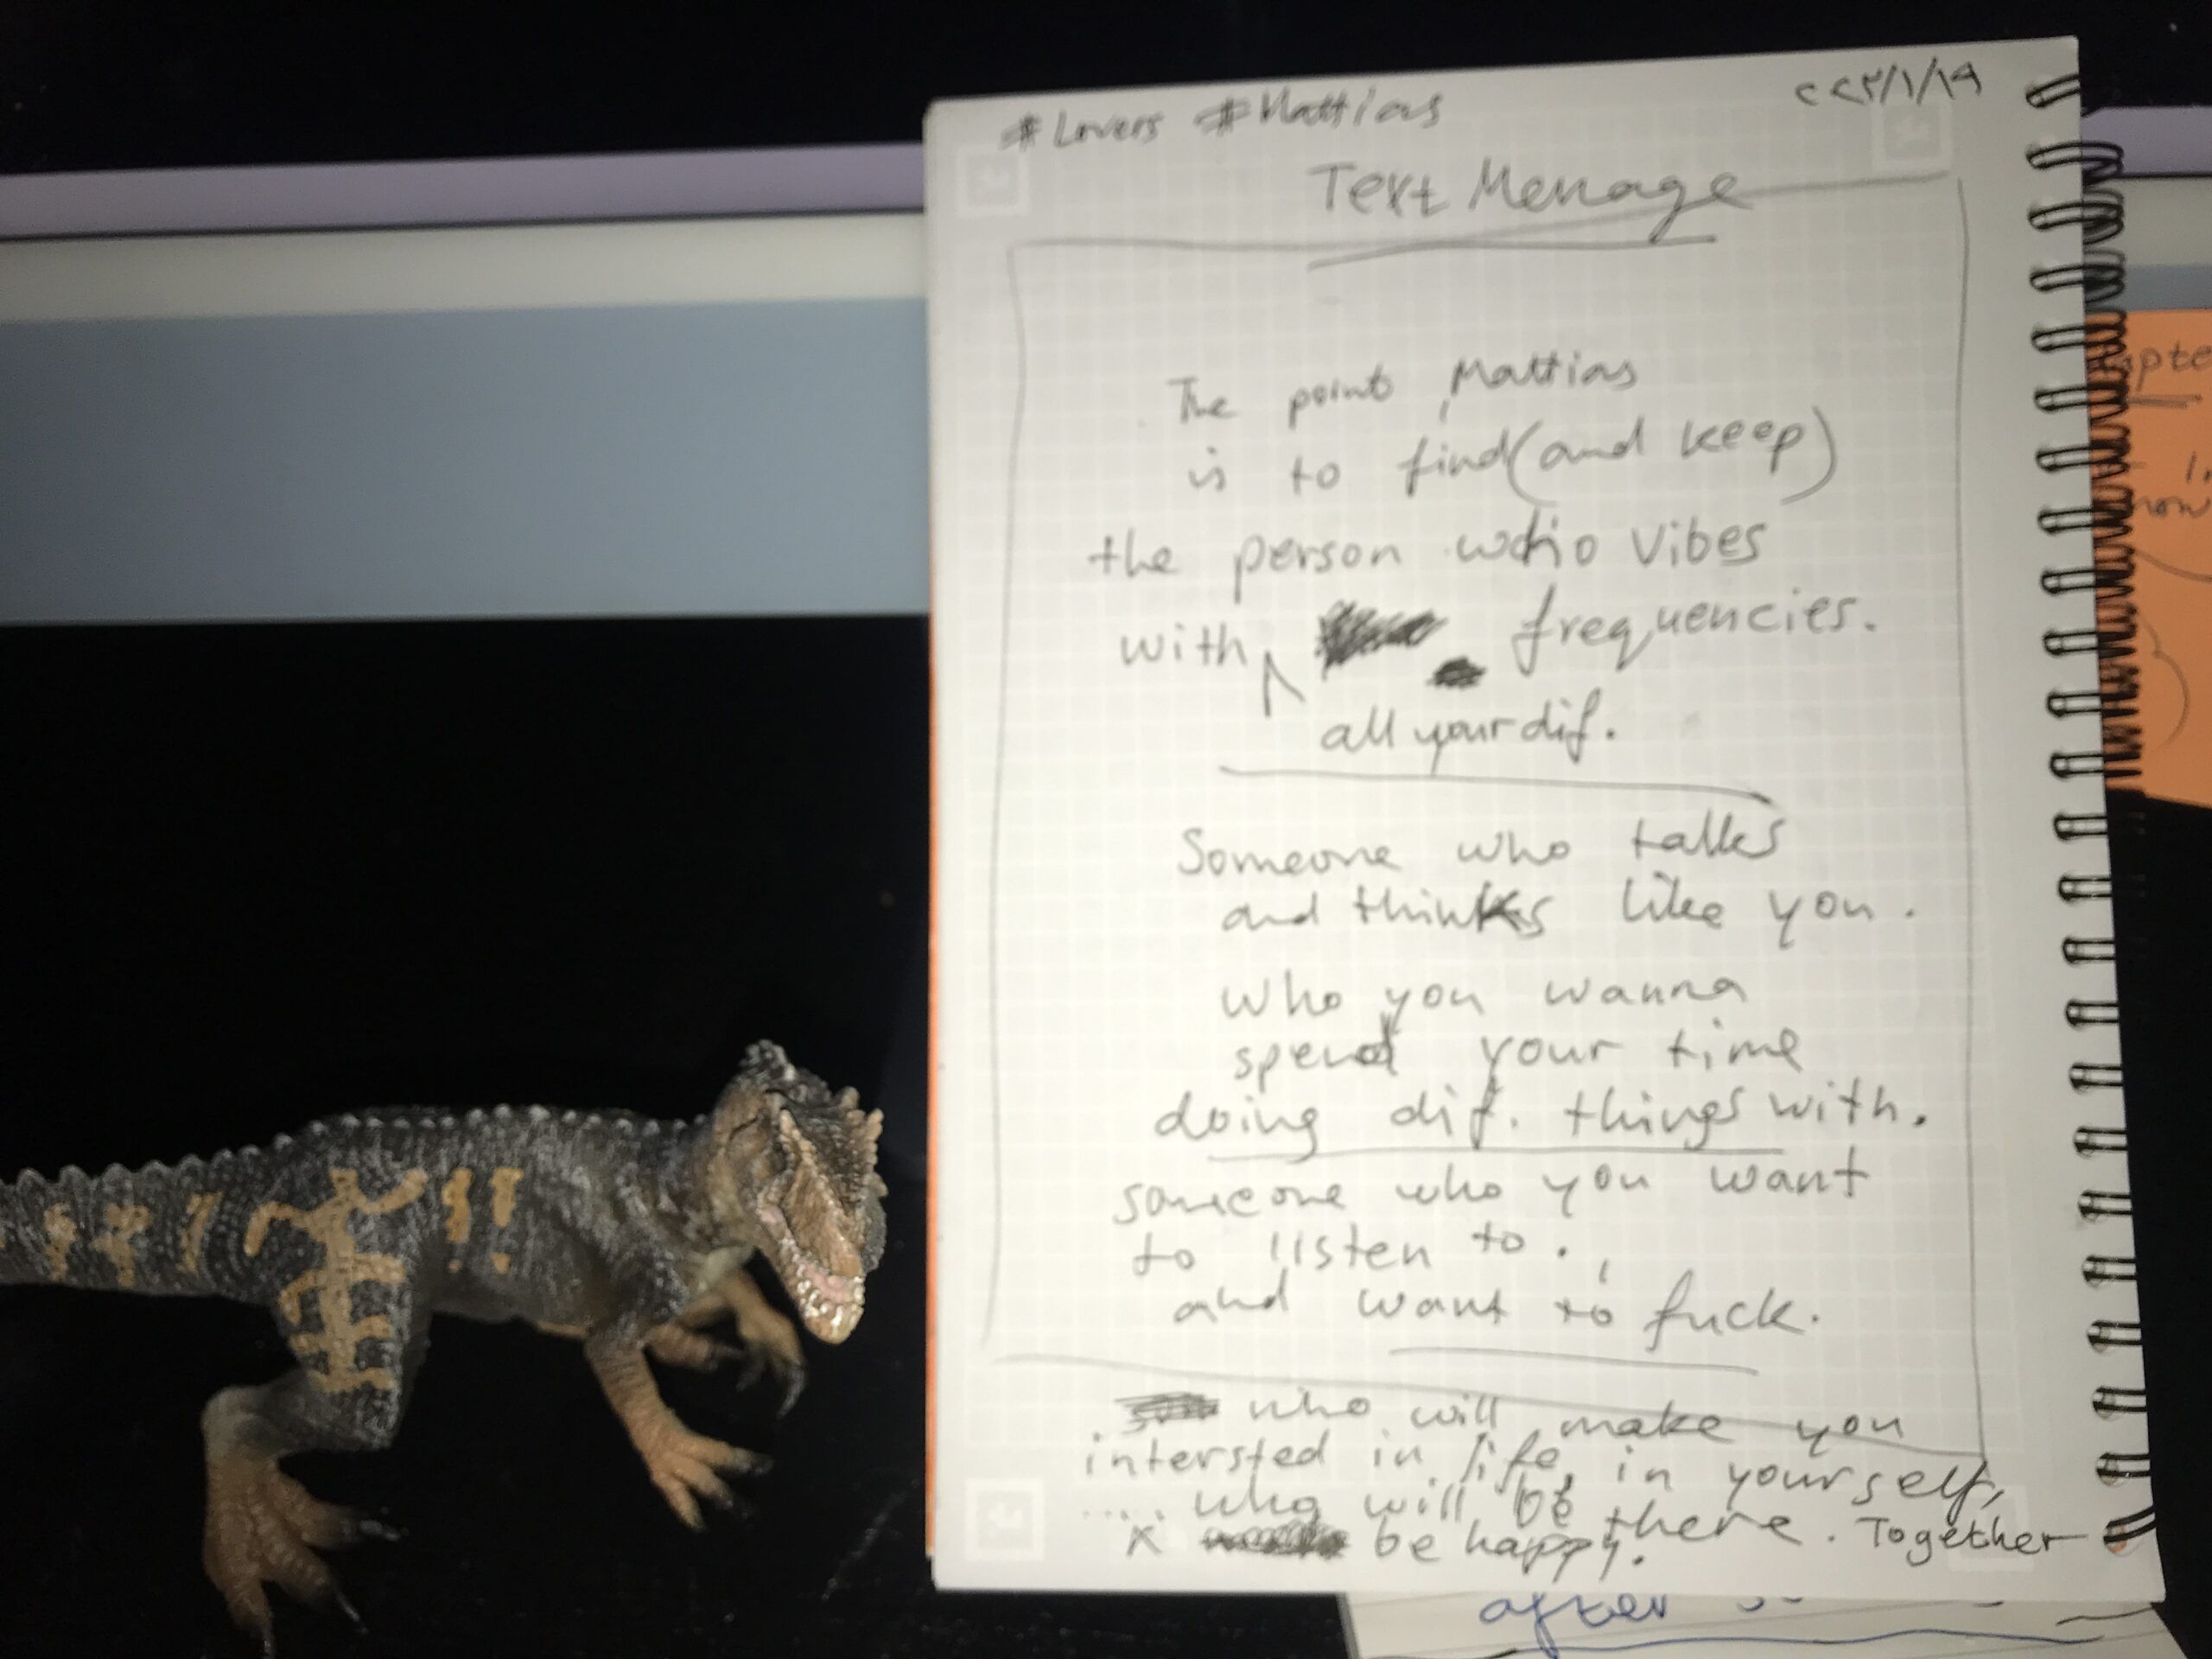 #Lovers #Mattias
Text Message
The point, Mattias
is to find (and keep)
the person who vibes
with all your dif. frequencies.
Someone who talks
and thinks like you.
who you wanna
spend your time
doing dif. things with.
someone who you want
to listen to.
and want to fuck.
who will make you
intersted in life, in yourself,
..... who will be there. Together
be happy.
after